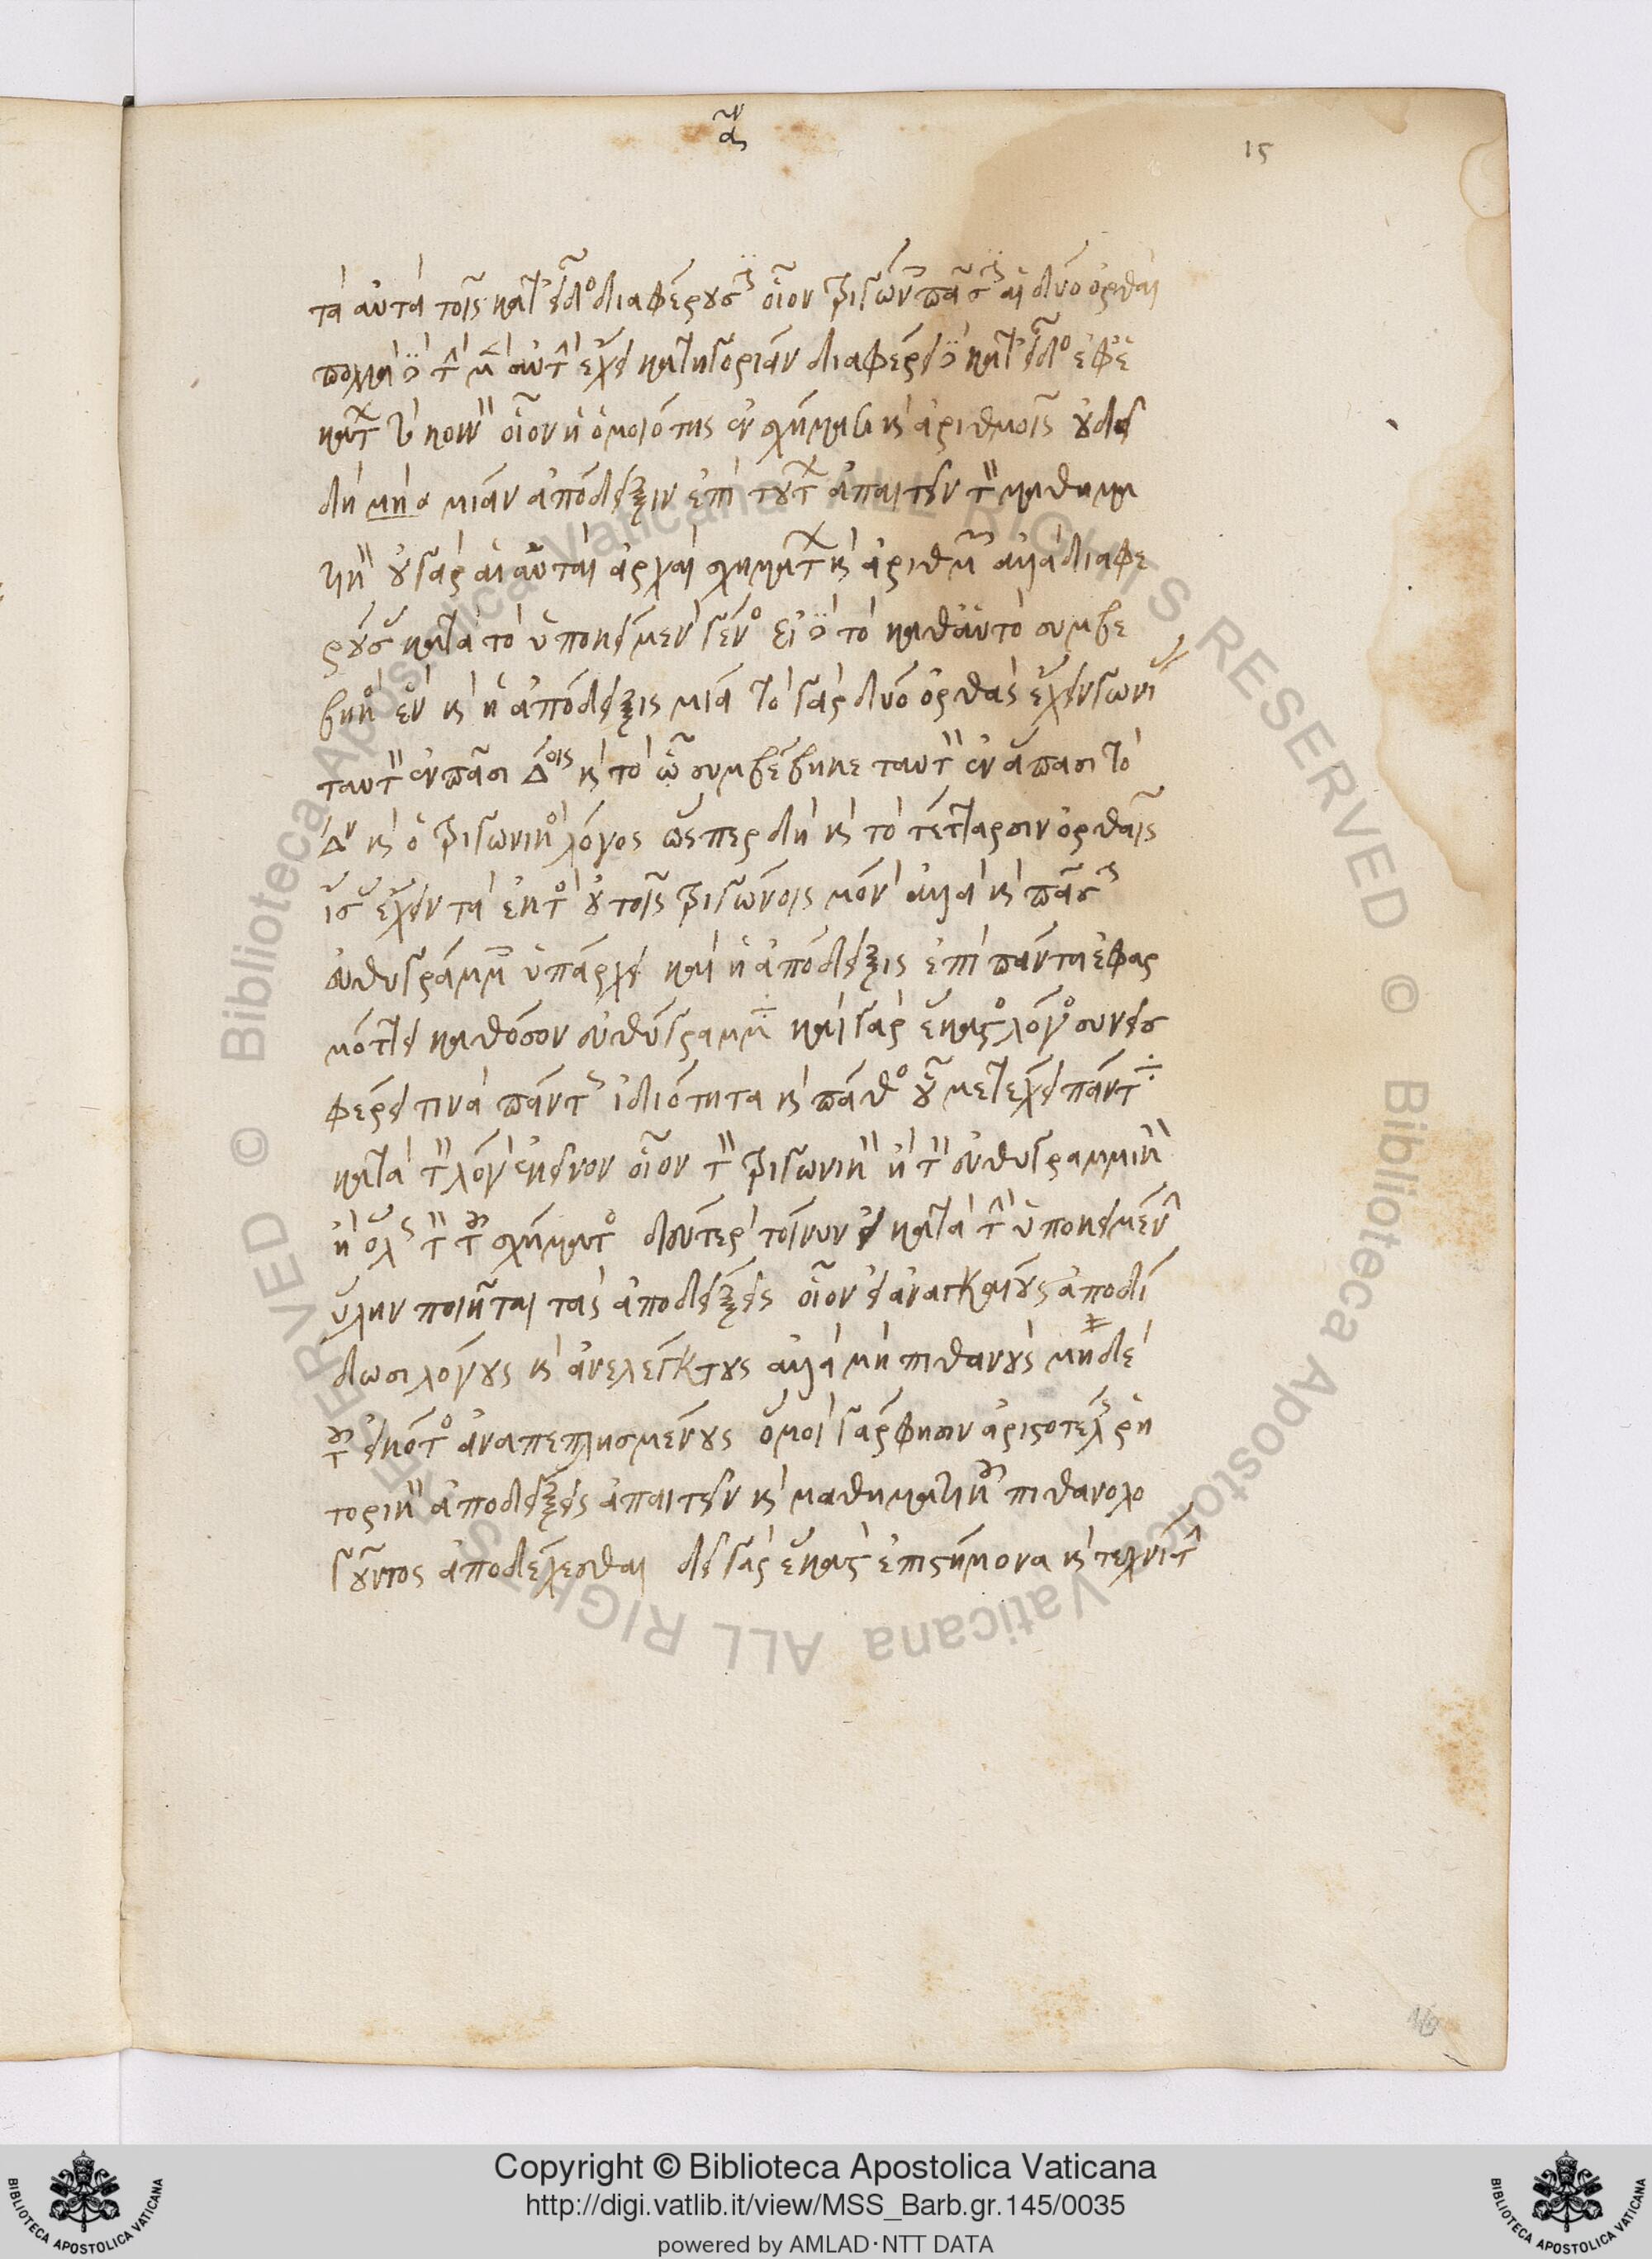 α<sup>ον</sup>
15
τὰ αὐτὰ τοῖς κατ' εἶδος διαφέρουσι οἷον τριγώνοις πᾶσι αἱ δύο ὀρθαὶ
πολλὰ δὲ τὴν μὲν αὐτὴν ἔχει κατηγορίαν διαφέρει δὲ κατ' εἶδος ἐφ' ἑ
κάστων τὸ κοινὸν οἷον ἡ ὁμοιότης ἐν σχήμασι καὶ ἀριθμοῖς οὐ δεῖ
δὴ μίαν ἀπόδειξιν ἐπὶ τούτων ἀπαιτεῖν τὸν μαθηματι
κὸν οὐ γὰρ αἱ αὐταὶ ἀρχαὶ σχημάτων καὶ ἀριθμῶν ἀλλὰ διαφέ
ρουσαι κατὰ τὸ ὑποκείμενον γένος εἰ δὲ τὸ καθ' αὑτὸ συμβε
βηκὸς ἓν καὶ ἡ ἀπόδειξις μία τὸ γὰρ δύο ὀρθὰς ἔχειν γωνίας
ταυτὸν ἐν πᾶσι Δοις καὶ τὸ ᾧ συμβέβηκε ταυτὸν ἐν ἅπασι τὸ
Δον καὶ ὁ τριγωνικὸς λόγος ὥσπερ δὴ καὶ τὸ τέτταρσιν ὀρθαῖς
ἴσας ἔχειν τὰς ἐκτὸς οὐ τοῖς τριγώνοις μόνον ἀλλὰ καὶ πᾶσι
εὐθυγράμμοις ὑπάρχει καὶ ἡ ἀπόδειξις ἐπὶ πάντα ἐφαρ
μόττει καθόσον εὐθύγραμμά ἐστι καὶ γὰρ ἕκαστος λόγος συνεισ
φέρει τινὰ πάντως ἰδιότητα καὶ πάθος οὗ μετέχει πάντα
κατὰ τὸν λόγον ἐκεῖνον οἷον τὸν τριγωνικὸν ἢ τὸν εὐθυγραμμικὸν
ἢ ὅλως τὸν τοῦ σχήματος δεύτερον τοίνυν εἰ κατὰ τὴν ὑποκειμένην
ὕλην ποιῆται τὰς ἀποδείξεις οἷον εἰ ἀναγκαίους ἀποδί
δωσι λόγους καὶ ἀνελέγκτους ἀλλὰ μὴ πιθανοὺς μηδὲ
τοῦ εἰκότος ἀναπεπλησμένους ὅμοιον γάρ φησιν ἀριστοτέλης ῥη
τορικὸν ἀποδείξεις ἀπαιτεῖν καὶ μαθηματικοῦ πιθανολο
γοῦντος ἀποδέχεσθαι δεῖ γὰρ ἕκαστον ἐπιστήμονα καὶ τεχνίτην
Copyright © Biblioteca Apostolica Vaticana
http://digi.vatlib.it/view/MSS_Barb.gr.145/0035
powered by AMLAD·NTT DATA